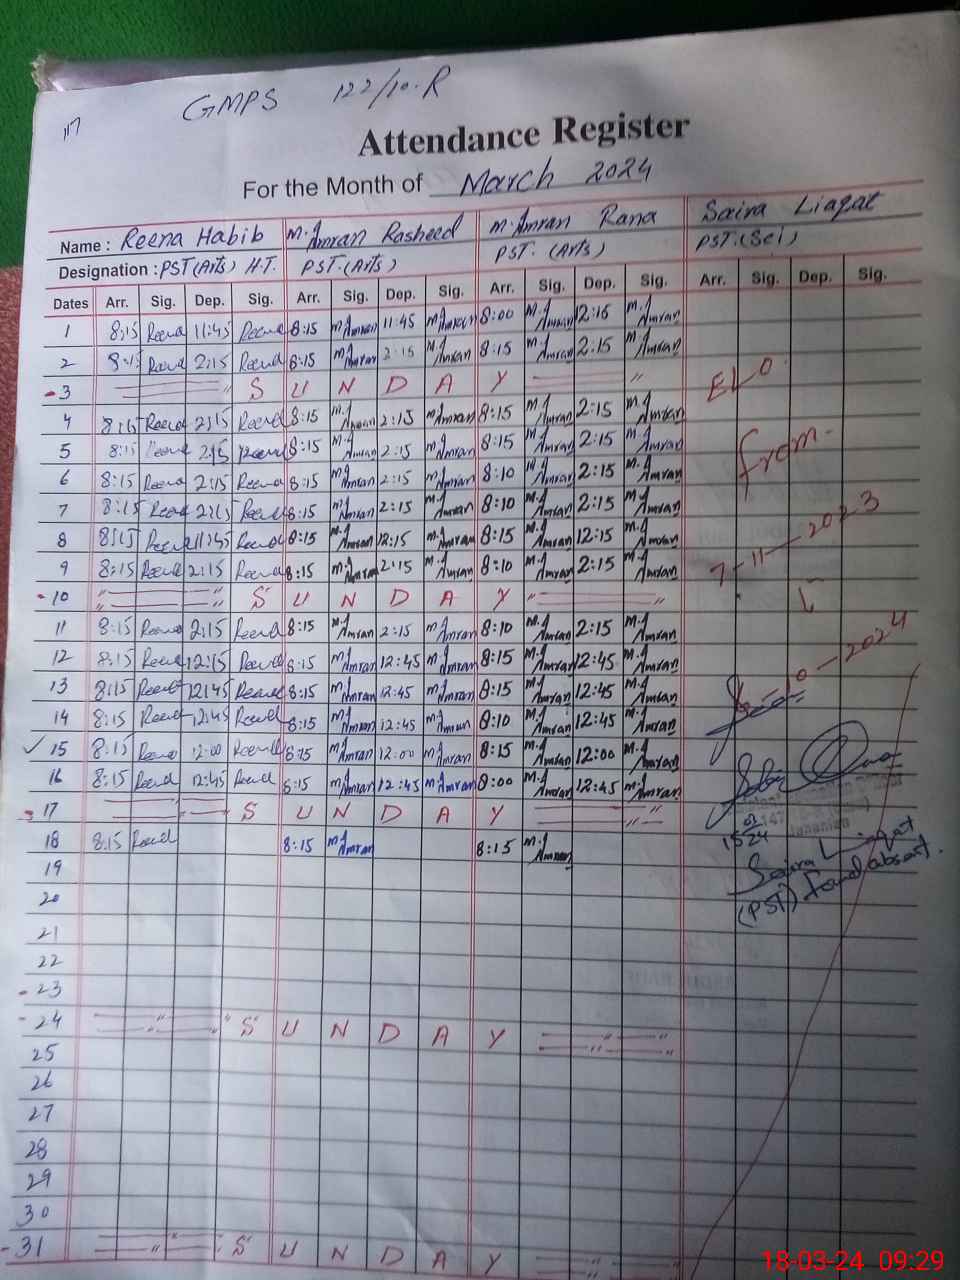 117
GMPS 122/10-R
Attendance Register
For the Month of March 2024
Name : Reena Habib M. Amran Rasheed M. Amran Rana Saira Liaqat
Designation : PST (Arts) H.T. PST. (Arts) PST. (Arts) PST. (Sci)
Dates Arr. Sig. Dep. Sig. Arr. Sig. Dep. Sig. Arr. Sig. Dep. Sig. Arr. Sig. Dep. Sig.
1 8:15 Reena 11:45 Reena 8:15 M. Amran 11:45 M. Amran 8:00 M. Amran 12:15 M. Amran
2 8:15 Reena 2:15 Reena 8:15 M. Amran 2:15 M. Amran 8:15 M. Amran 2:15 M. Amran
3 S U N D A Y
ELO
4 8:15 Reena 2:15 Reena 8:15 M. Amran 2:15 M. Amran 8:15 M. Amran 2:15 M. Amran
5 8:15 Reena 2:15 Reena 8:15 M. Amran 2:15 M. Amran 8:15 M. Amran 2:15 M. Amran
from
6 8:15 Reena 2:15 Reena 8:15 M. Amran 2:15 M. Amran 8:10 M. Amran 2:15 M. Amran
7 8:15 Reena 2:15 Reena 8:15 M. Amran 2:15 M. Amran 8:10 M. Amran 2:15 M. Amran
8 8:15 Reena 11:45 Reena 8:15 M. Amran 12:15 M. Amran 8:15 M. Amran 12:15 M. Amran
7-11-2023
9 8:15 Reena 2:15 Reena 8:15 M. Amran 2:15 M. Amran 8:10 M. Amran 2:15 M. Amran
10 S U N D A Y
11 8:15 Reena 2:15 Reena 8:15 M. Amran 2:15 M. Amran 8:10 M. Amran 2:15 M. Amran
12 8:15 Reena 12:15 Reena 8:15 M. Amran 12:45 M. Amran 8:15 M. Amran 12:45 M. Amran
13 8:15 Reena 12:45 Reena 8:15 M. Amran 12:45 M. Amran 8:15 M. Amran 12:45 M. Amran
14 8:15 Reena 12:45 Reena 8:15 M. Amran 12:45 M. Amran 8:10 M. Amran 12:45 M. Amran
15 8:15 Reena 12:00 Reena 8:15 M. Amran 12:00 M. Amran 8:15 M. Amran 12:00 M. Amran
16 8:15 Reena 12:45 Reena 8:15 M. Amran 12:45 M. Amran 8:00 M. Amran 12:45 M. Amran
17 S U N D A Y
18 8:15 Reena 8:15 M. Amran 8:15 M. Amran
19
Saira Liaqat
(PST) found absent.
20
21
22
23
24 S U N D A Y
25
26
27
28
29
30
31 S U N D A Y
18-03-24 09:29